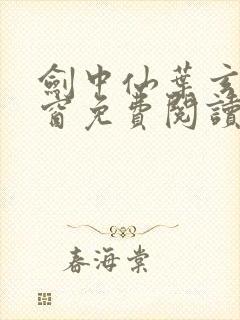 劍中仙葉玄
窗免費閱讀
春海棠